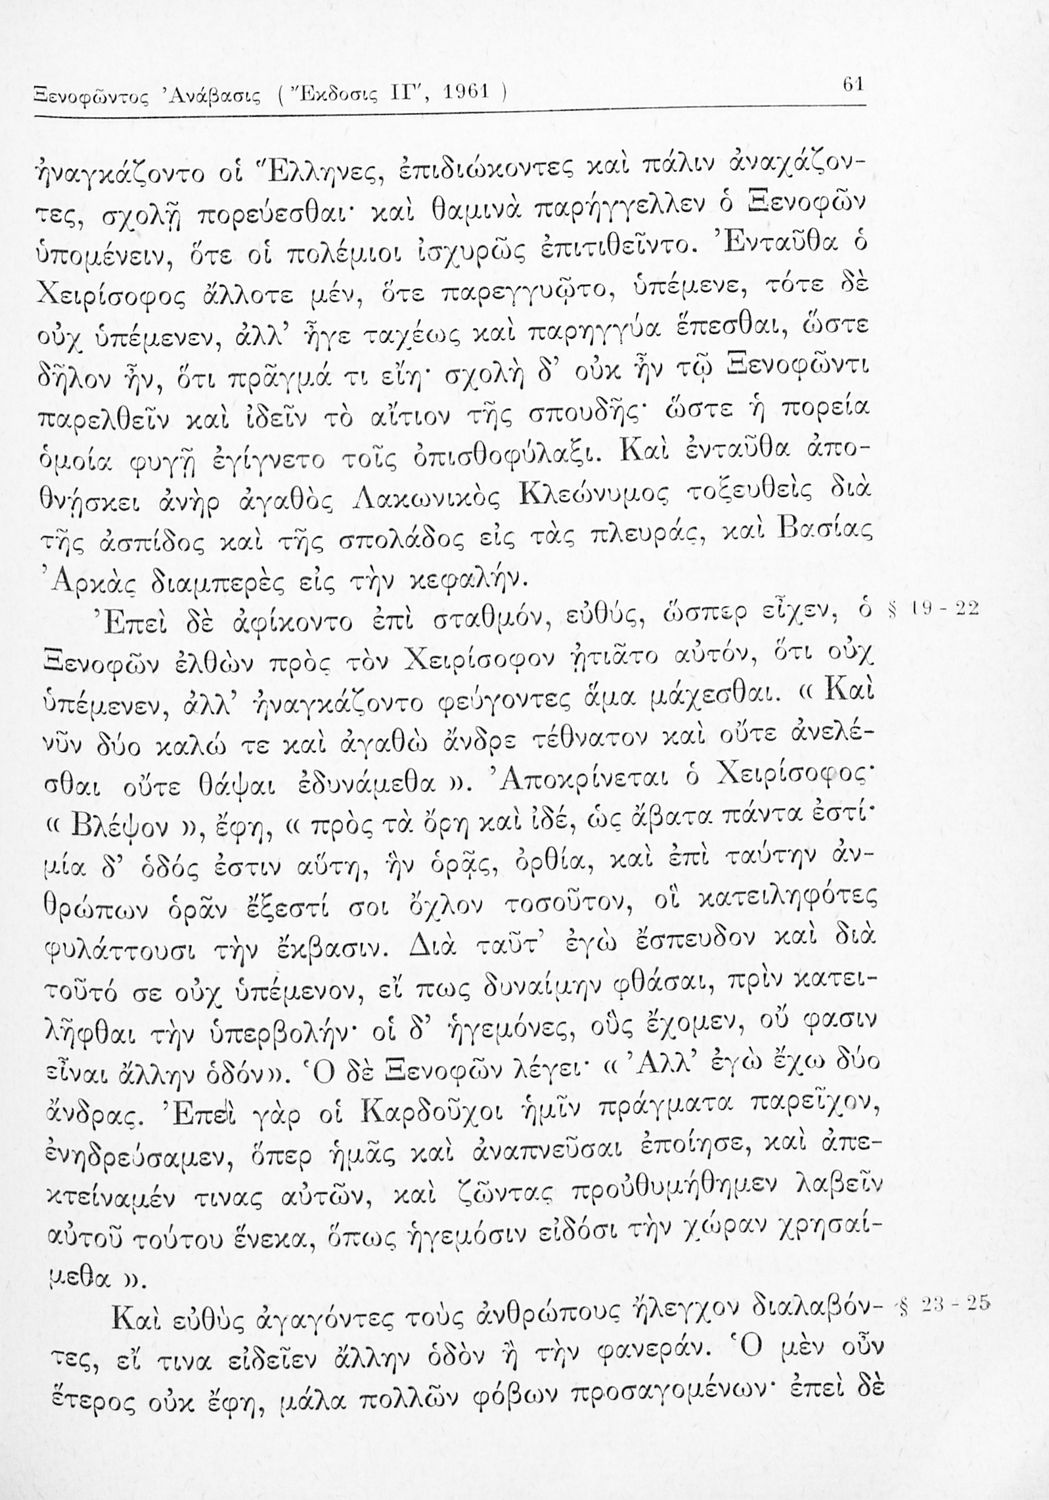 Ξενοφῶντος Ἀνάβασις ( Ἔκδοσις ΙΓ′, 1961 ) 61
ἠναγκάζοντο οἱ Ἕλληνες, ἐπιδιώκοντες καὶ πάλιν ἀναχάζον-
τες, σχολῇ πορεύεσθαι· καὶ θαμινὰ παρήγγελλεν ὁ Ξενοφῶν
ὑπομένειν, ὅτε οἱ πολέμιοι ἰσχυρῶς ἐπιτιθεῖντο. Ἐνταῦθα ὁ
Χειρίσοφος ἄλλοτε μέν, ὅτε παρεγγυῷτο, ὑπέμενε, τότε δὲ
οὐχ ὑπέμενεν, ἀλλ’ ἦγε ταχέως καὶ παρηγγύα ἕπεσθαι, ὥστε
δῆλον ἦν, ὅτι πρᾶγμά τι εἴη· σχολὴ δ’ οὐκ ἦν τῷ Ξενοφῶντι
παρελθεῖν καὶ ἰδεῖν τὸ αἴτιον τῆς σπουδῆς· ὥστε ἡ πορεία
ὁμοία φυγῇ ἐγίγνετο τοῖς ὀπισθοφύλαξι. Καὶ ἐνταῦθα ἀπο-
θνῄσκει ἀνὴρ ἀγαθὸς Λακωνικὸς Κλεώνυμος τοξευθεὶς διὰ
τῆς ἀσπίδος καὶ τῆς σπολάδος εἰς τὰς πλευράς, καὶ Βασίας
Ἀρκὰς διαμπερὲς εἰς τὴν κεφαλήν.
Ἐπεὶ δὲ ἀφίκοντο ἐπὶ σταθμόν, εὐθύς, ὥσπερ εἶχεν, ὁ § 19 - 22
Ξενοφῶν ἐλθὼν πρὸς τὸν Χειρίσοφον ᾐτιᾶτο αὐτόν, ὅτι οὐχ
ὑπέμενεν, ἀλλ’ ἠναγκάζοντο φεύγοντες ἅμα μάχεσθαι. « Καὶ
νῦν δύο καλώ τε καὶ ἀγαθὼ ἄνδρε τέθνατον καὶ οὔτε ἀνελέ-
σθαι οὔτε θάψαι ἐδυνάμεθα ». Ἀποκρίνεται ὁ Χειρίσοφος·
« Βλέψον », ἔφη, « πρὸς τὰ ὄρη καὶ ἰδέ, ὡς ἄβατα πάντα ἐστί·
μία δ’ ὁδός ἐστιν αὕτη, ἣν ὁρᾷς, ὀρθία, καὶ ἐπὶ ταύτην ἀν-
θρώπων ὁρᾶν ἔξεστί σοι ὄχλον τοσοῦτον, οἳ κατειληφότες
φυλάττουσι τὴν ἔκβασιν. Διὰ ταῦτ’ ἐγὼ ἔσπευδον καὶ διὰ
τοῦτό σε οὐχ ὑπέμενον, εἴ πως δυναίμην φθάσαι, πρὶν κατει-
λῆφθαι τὴν ὑπερβολήν· οἱ δ’ ἡγεμόνες, οὓς ἔχομεν, οὔ φασιν
εἶναι ἄλλην ὁδόν». Ὁ δὲ Ξενοφῶν λέγει· « Ἀλλ’ ἐγὼ ἔχω δύο
ἄνδρας. Ἐπεὶ γὰρ οἱ Καρδοῦχοι ἡμῖν πράγματα παρεῖχον,
ἐνηδρεύσαμεν, ὅπερ ἡμᾶς καὶ ἀναπνεῦσαι ἐποίησε, καὶ ἀπε-
κτείναμέν τινας αὐτῶν, καὶ ζῶντας προὐθυμήθημεν λαβεῖν
αὐτοῦ τούτου ἕνεκα, ὅπως ἡγεμόσιν εἰδόσι τὴν χώραν χρησαί-
μεθα ».
Καὶ εὐθὺς ἀγαγόντες τοὺς ἀνθρώπους ἤλεγχον διαλαβόν- § 23 - 25
τες, εἴ τινα εἰδεῖεν ἄλλην ὁδὸν ἢ τὴν φανεράν. Ὁ μὲν οὖν
ἕτερος οὐκ ἔφη, μάλα πολλῶν φόβων προσαγομένων· ἐπεὶ δὲ